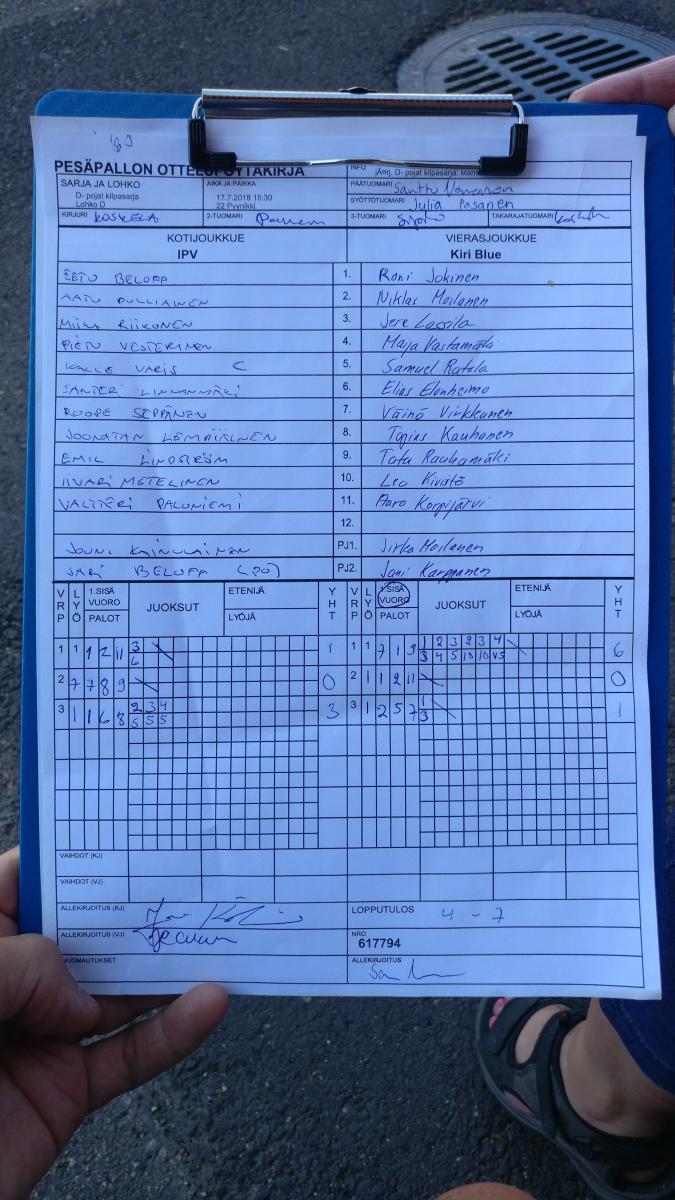 PESÄPALLON OTTELUPÖYTÄKIRJA
INFO
SARJA JA LOHKO
D- pojat kilpasarja
Lohko D
AIKA JA PAIKKA
17.7.2018 15:30
22 Pyynikki
PÄÄTUOMARI Santtu
SYÖTTÖTUOMARI Julia Pasanen
KIRJURI KOSKELA
2-TUOMARI
3-TUOMARI
TAKARAJATUOMARI
KOTIJOUKKUE
IPV
VIERASJOUKKUE
Kiri Blue
EETU BELOFF 1. Roni Jokinen
AATU PULLIAINEN 2. Niklas Moilanen
MIIKA RIIKONEN 3. Jere Lassila
PIETU VESTERINEN 4. Maija Vastamäki
KALLE VARIS C 5. Samuel Ratala
SANTERI LINNANMÄKI 6. Elias Elonheimo
ROOPE SEPPÄNEN 7. Väinö Virkkunen
JOONATAN LEMPIÄINEN 8. Topias Kauhanen
EMIL LINDSTRÖM 9. Tatu Rauhamäki
IIVARI METELINEN 10. Leo Kivistö
VALTTERI PALONIEMI 11. Aaro Korpijärvi
12.
JOUNI KAINULAINEN PJ1. Jirka Moilanen
JARI BELOFF PJ2. Jani Karppanen
VRP LYÖ 1.SISÄ VUORO PALOT JUOKSUT ETENIJÄ LYÖJÄ YHT VRP LYÖ 1.SISÄ VUORO PALOT JUOKSUT ETENIJÄ LYÖJÄ YHT
1 1 1 2 11 3 1 1 1 7 1 9 1 2 3 2 3 4 6
6 3 4 5 10 10 VS
2 7 7 8 9 0 2 1 1 2 11 0
3 1 1 6 8 2 3 4 3 3 1 2 5 7 1 1
5 5 5 3
VAIHDOT (KJ)
VAIHDOT (VJ)
ALLEKIRJOITUS (KJ)
LOPPUTULOS 4 - 7
ALLEKIRJOITUS (VJ)
NRO
617794
HUOMAUTUKSET
ALLEKIRJOITUS